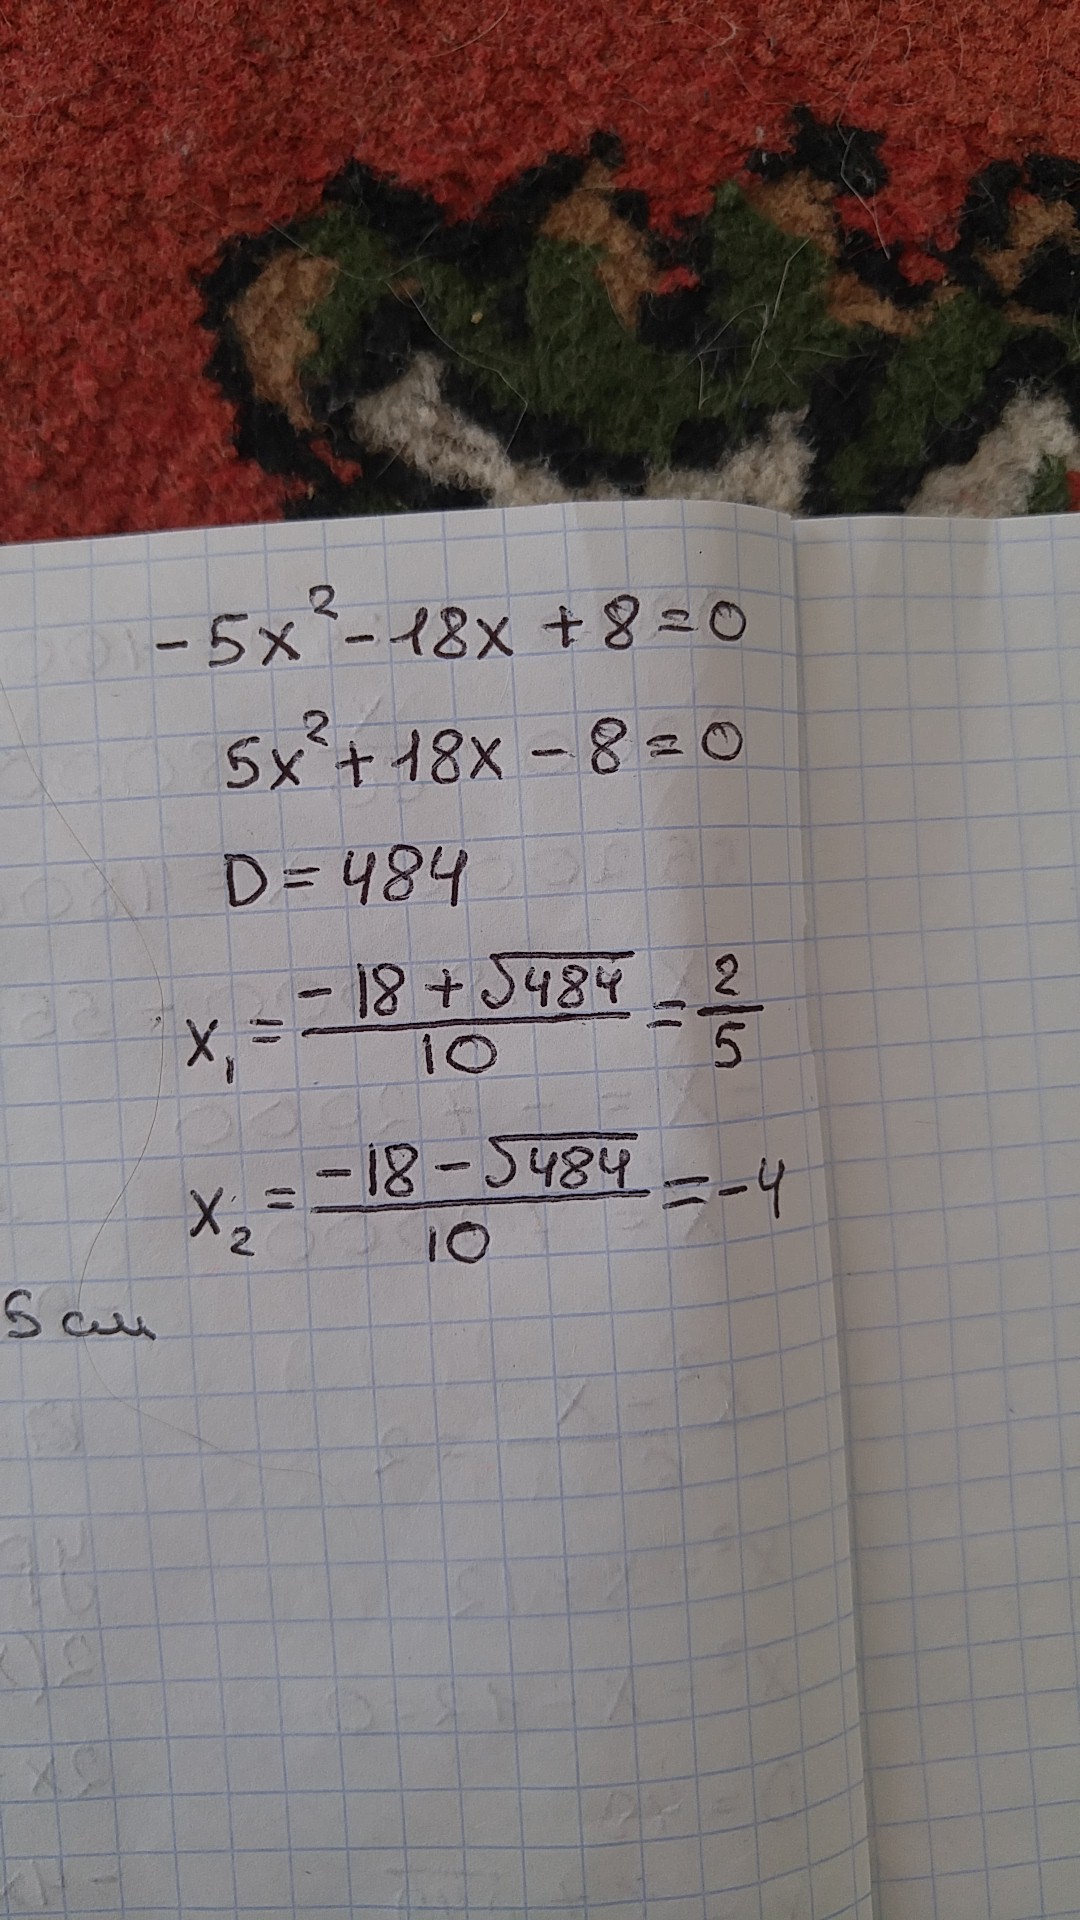 -5x² - 18x + 8 = 0
5x² + 18x - 8 = 0
D = 484
x₁ = (-18 + √484)/10 = 2/5
x₂ = (-18 - √484)/10 = -4
5 см